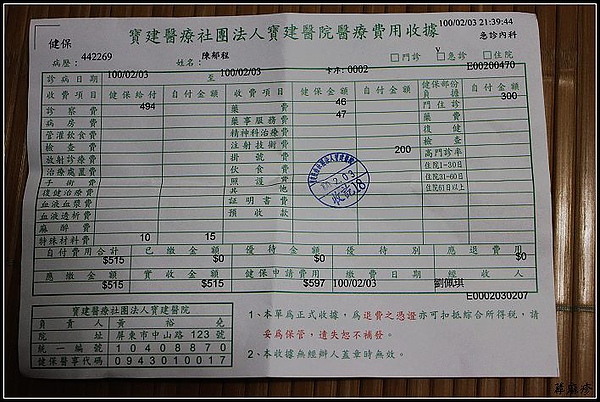 寶建醫療社團法人寶建醫院醫療費用收據
100/02/03 21:39:44
健保
急診內科
病歷： 442269 姓名： 門診 v 急診 住院
診病日期 100/02/03 至 100/02/03 卡序: 0002 E00200470
收費項目 健保給付 自付金額 收費項目 健保給付 自付金額 健保部份負擔 300
診察費 494 藥費 46 門住診
病房費 藥事服務費 47 藥費
管灌飲食費 精神科治療費 復健
檢查費 注射技術費 檢查
放射診療費 掛號費 200 高門診率
治療處置費 飲食費 住院1-30日
手術費 照護費 住院31-60日
復健治療費 其他 住院61日以上
血液血漿費 證明書費
血液透析費 預收款
麻醉費
特殊材料費 10 15
自付費用合計 已繳金額 優待金額 優待別 應退費用
$515 $0 $0 $0
應繳金額 實收金額 健保申請費用 繳費日期 經收人
$515 $515 $597 100/02/03 劉佩琪
E0002030207
寶建醫療社團法人寶建醫院
負責人 黃裕兌
院址 屏東市中山路123號
統一編號 10408870
健保醫事代碼 0943010017
1、本單為正式收據，為退費之憑證亦可扣抵綜合所得稅，請
妥為保管，遺失恕不補發。
2、本收據無經辦人蓋章時無效。
蕁麻疹